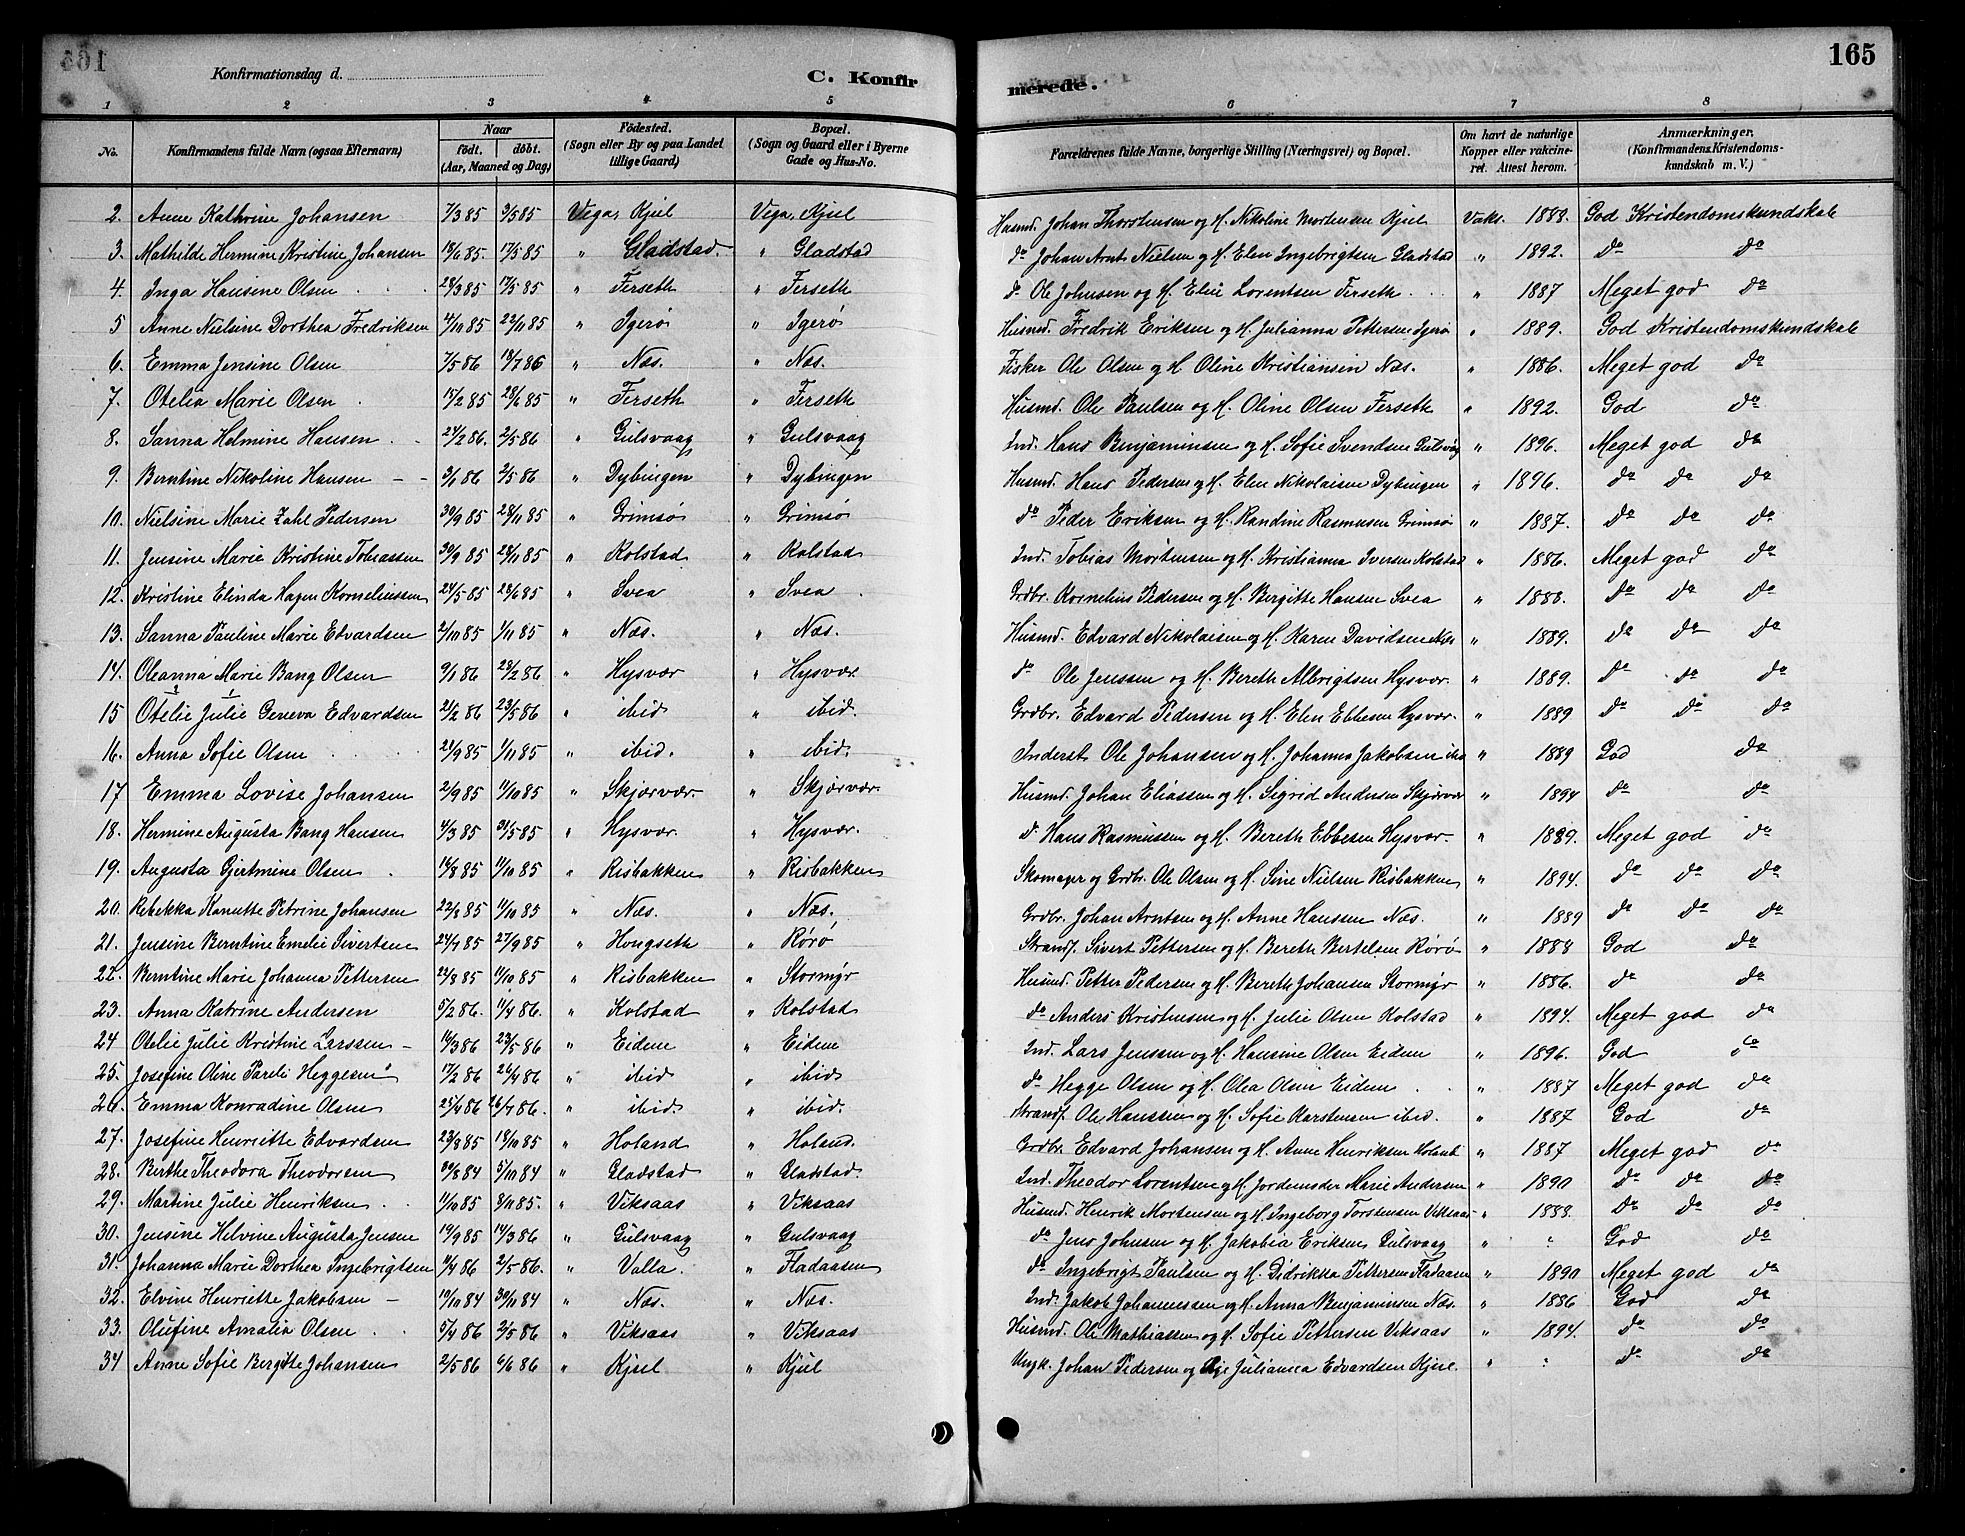 165
Konfirmationsdag d.
C. Konfirmerede.
1 2 3 4 5 6 7 8
No. Konfirmandens fulde Navn (ogsaa Efternavn) Naar født. døbt. (Aar, Maaned og Dag) Fødested. (Sogn eller By og paa Landet tillige Gaard) Bopæl. (Sogn og Gaard eller i Byerne Gade og Hus-No. Forældrenes fulde Navne, borgerlige Stilling (Næringsvei) og Bopæl. Om havt de naturlige Kopper eller vakcineret. Attest herom. Anmærkninger. (Konfirmandens Kristendomskundskab m. V.)
2. Anne Kathrine Johansen 7/3 85 3/5 85 Vega, Kjul Vega, Kjul Husmd. Johan Thorstensen og H. Nikoline Mortensen Kjul Vaks. 1888. God Kristendomskundskab
3. Mathilde Hermine Kristine Johansen 18/6 85. 17/5 85 " Gladstad. " Gladstad do Johan Arnt Nielsen og H. Elen Ingebrigtsen Gladstad " 1892. do do
4. Inga Hansine Olsen 28/3 85 17/5 85 " Ferseth " Ferseth do Ole Johnsen og H. Elie Lorentsen Ferseth " 1887 Meget god do
5 Anne Nielsine Dorthea Fredriksen 4/10 85 22/11 85 " Igerø " Igerø Husmd. Fredrik Eriksen og H. Julianna Pettersen Igerø " 1889. God Kristendomskundskab
6. Emma Jensine Olsen 7/5 86 18/7 86 " Næs. " Næs. Fisker Ole Olsen og H. Oline Kristiansen Næs. " 1886. Meget god do
7. Otelia Marie Olsen 15/2 85 28/6 85 " Ferseth " Ferseth Husmd. Ole Paulsen og H. Oline Olsen Ferseth " 1892. God do
8. Sanna Helmine Hansen 24/2 86. 2/5 86 " Gulsvaag " Gulsvaag Ind. Hans Benjaminsen og H. Sofie Svendsen Gulsvåg " 1896. Meget god do
9. Berntine Nikoline Hansen 3/1 86 2/5 86 " Dybingen " Dybingen Husmd. Hans Pedersen og H. Elen Nikolaisen Dybingen " 1896. do do do
10. Nielsine Marie Zahl Pedersen 30/9 85 28/11 85 " Grimsø " Grimsø do Peder Eriksen og H. Randine Rasmussen Grimsø " 1887. do do do
11. Jensine Marie Kristine Tobiassen 30/9 85 28/11 85 " Kolstad " Kolstad Ind. Tobias Mortensen og H. Kristianna Iversen Kolstad " 1886. Meget god do
12. Kristine Elinda Hagen Korneliussen 24/5 85 22/6 85 " Svea " Svea Grdbr. Kornelius Pedersen og H. Bergitte Hansen Svea " 1888. do do do
13. Sanna Pauline Marie Edvardsen 2/10 85 1/11 85 " Næs. " Næs. Husmd. Edvard Nikolaisen og H. Karen Davidsen Næs " 1889. do do do
14. Oleanna Marie Bang Olsen 9/1 86 28/2 86 " Hysvær " Hysvær do Ole Jenssen og H. Bereth Albrigtsen Hysvær. " 1889. do do do
15 Otelie Julie Geneva Edvardsen 21/2 86 23/5 86 " ibid " ibid. Grdbr. Edvard Pedersen og H. Elen Ebbesen Hysvær. " 1889 do do do
16. Anna Sofie Olsen 22/9 85 1/11 85 " ibid. " ibid. Inderst Ole Johansen og H. Johanna Jakobsen ibd " 1889 God do
17 Emma Lovise Johansen 2/9 85 11/10 85 " Skjærvær " Skjærvær. Husmd. Johan Eliassen og H. Sigrid Andersen Skjærvær " 1894 do do
18. Hermine Augusta Bang Hansen 4/3 85 31/5 85 " Hysvær. " Hysvær. do Hans Rasmussen og H. Bereth Ebbesen Hysvær. " 1889. Meget god do
19. Augusta Gjertmine Olsen 14/8 85 11/10 85 " Risbakken " Risbakken Skomager og Grdbr. Ole Olsen og H. Sine Nielsen Risbakken " 1894. do do do
20. Rebekka Kanutte Petrine Johansen 22/8 85 11/10 85 " Næs. " Næs. Grdbr. Johan Arntsen og H. Anne Hansen Næs. " 1889 do do do
21. Jensine Berntine Emelie Sivertsen 24/7 85 27/9 85 " Hongseth " Rørø Strandf. Sivert Pettersen og H. Bereth Bertelsen Rørø " 1888 God do
22. Berntine Marie Johanna Pettersen 22/8 85 11/10 85 " Risbakken " Stormyr Husmd. Petter Pedersen og H. Bereth Johansen Stormyr " 1886. do do
23. Anna Katrine Andersen 5/2 86. 11/4 86. " Kolstad " Kolstad do Anders Kristensen og H. Julie Olsen Kolstad " 1894. Meget god do
24 Otelie Julie Kristine Larssen 16/3 86 23/5 86 " Eidem " Eidem Ind. Lars Jenssen og H. Hansine Olsen Eidem " 1896. God do
25. Josefine Oline Pareli Heggesen 17/2 86 26/4 86 " ibid " ibid do Hegge Olsen og H. Olea Olsen Eidem " 1887 Meget god do
26. Emma Konradine Olsen 25/4 86 26/7 86. " ibid " ibid. Strandf. Ole Hanssen og H. Sofie Karstensen ibid. " 1887 God do
27. Josefine Henriette Edvardsen 23/8 85 18/10 85 " Holand " Holand. Grdbr. Edvard Johansen og H. Anne Henriksen Holand " 1887 Meget god do
28. Berthe Theodora Theodorsen 30/8 84 5/10 84 " Gladstad " Gladstad. Ind. Theodor Lorentsen og H. Jordemoder Marie Andersen " 1890 do do do
29. Martine Julie Henriksen 11/10 85 8/11 85. " Viksaas " Viksaas Husmd. Henrik Mortensen og H. Ingeborg Torstensen Viksaas " 1888. do do do
30. Jensine Helvine Augusta Jensen 19/9 85 14/3 86 " Gulsvaag " Gulsvaag do Jens Johnsen og H. Jakobia Eriksen Gulsvaag " " God do
31. Johanna Marie Dorthea Ingebrigtsen 11/4 86 2/5 86. " Valla. " Fladaasen do Ingebrigt Paulsen og H. Didrikka Pettersen Fladaasen " 1890 Meget god do
32. Elvine Henriette Jakobsen 19/10 84 30/11 84 " Næs. " Næs. Ind. Jakob Johannessen og H. Anna Benjaminsen Næs. " 1886 God do
33. Olufine Amalia Olsen 5/4 86 2/5 86 " Viksaas " Viksaas Husmd. Ole Mathiassen og H. Sofie Pettersen Viksaas " 1894. do do
34 Anne Sofie Bergitte Johansen 2/5 86 6/6 86 " Kjul " Kjul Ungk. Johan Pedersen og Pige Juliansea Edvardsen Kjul. " " do do